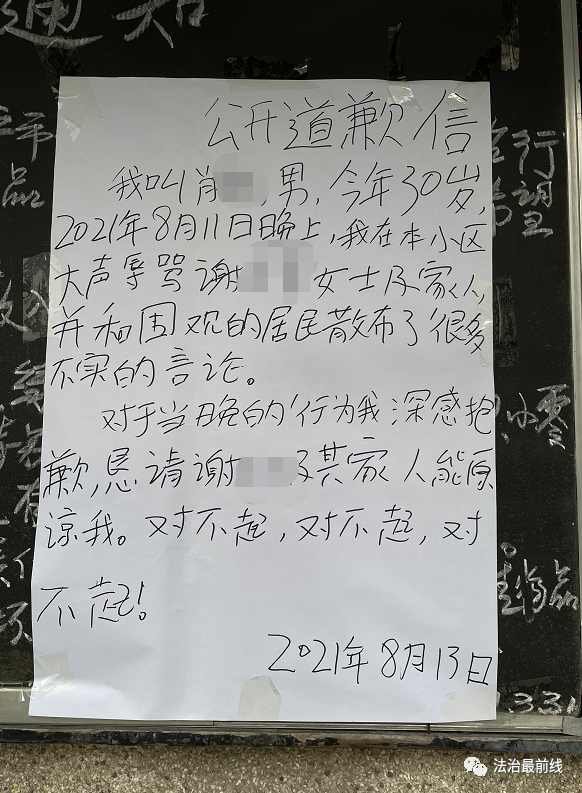 通知
公开道歉信
我叫肖，男，今年30岁，
2021年8月11日晚上，我在本小区
大声辱骂谢女士及家人，
并和围观的居民散布了很多
不实的言论。
对于当晚的行为我深感抱
歉，恳请谢及其家人能原
谅我。对不起，对不起，对
不起！
2021年8月13日
法治最前线